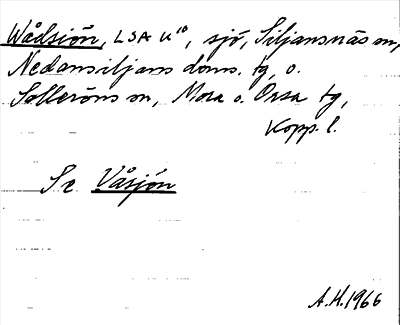 Wådsiön, LSA U¹⁰, sjö, Siljansnäs sn,
Nedansiljans doms. tg, o.
Solleröns sn, Mora o. Orsa tg,
Kopp. l.
Se Våsjön
A.H.1966